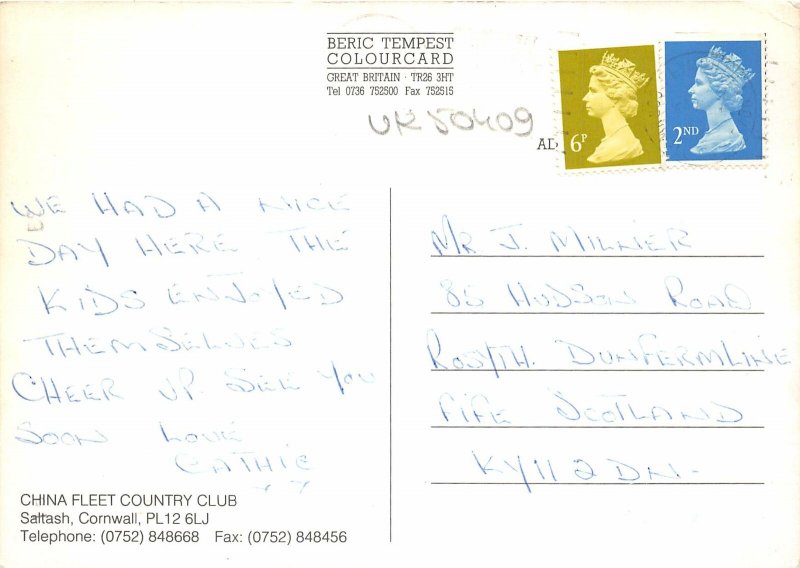 BERIC TEMPEST
COLOURCARD
GREAT BRITAIN · TR26 3HT
Tel 0736 752500 Fax 752515
UK50409
AD
6P
2ND
WE HAD A NICE
DAY HERE THE
KIDS ENJOYED
THEMSELVES
CHEER UP. SEE YOU
SOON LOVE
CATHIE
MR J. MILLIER
85 HUDSON ROAD
ROSYTH DUNFERMLINE
FIFE SCOTLAND
KY11 2DN
CHINA FLEET COUNTRY CLUB
Saltash, Cornwall, PL12 6LJ
Telephone: (0752) 848668 Fax: (0752) 848456